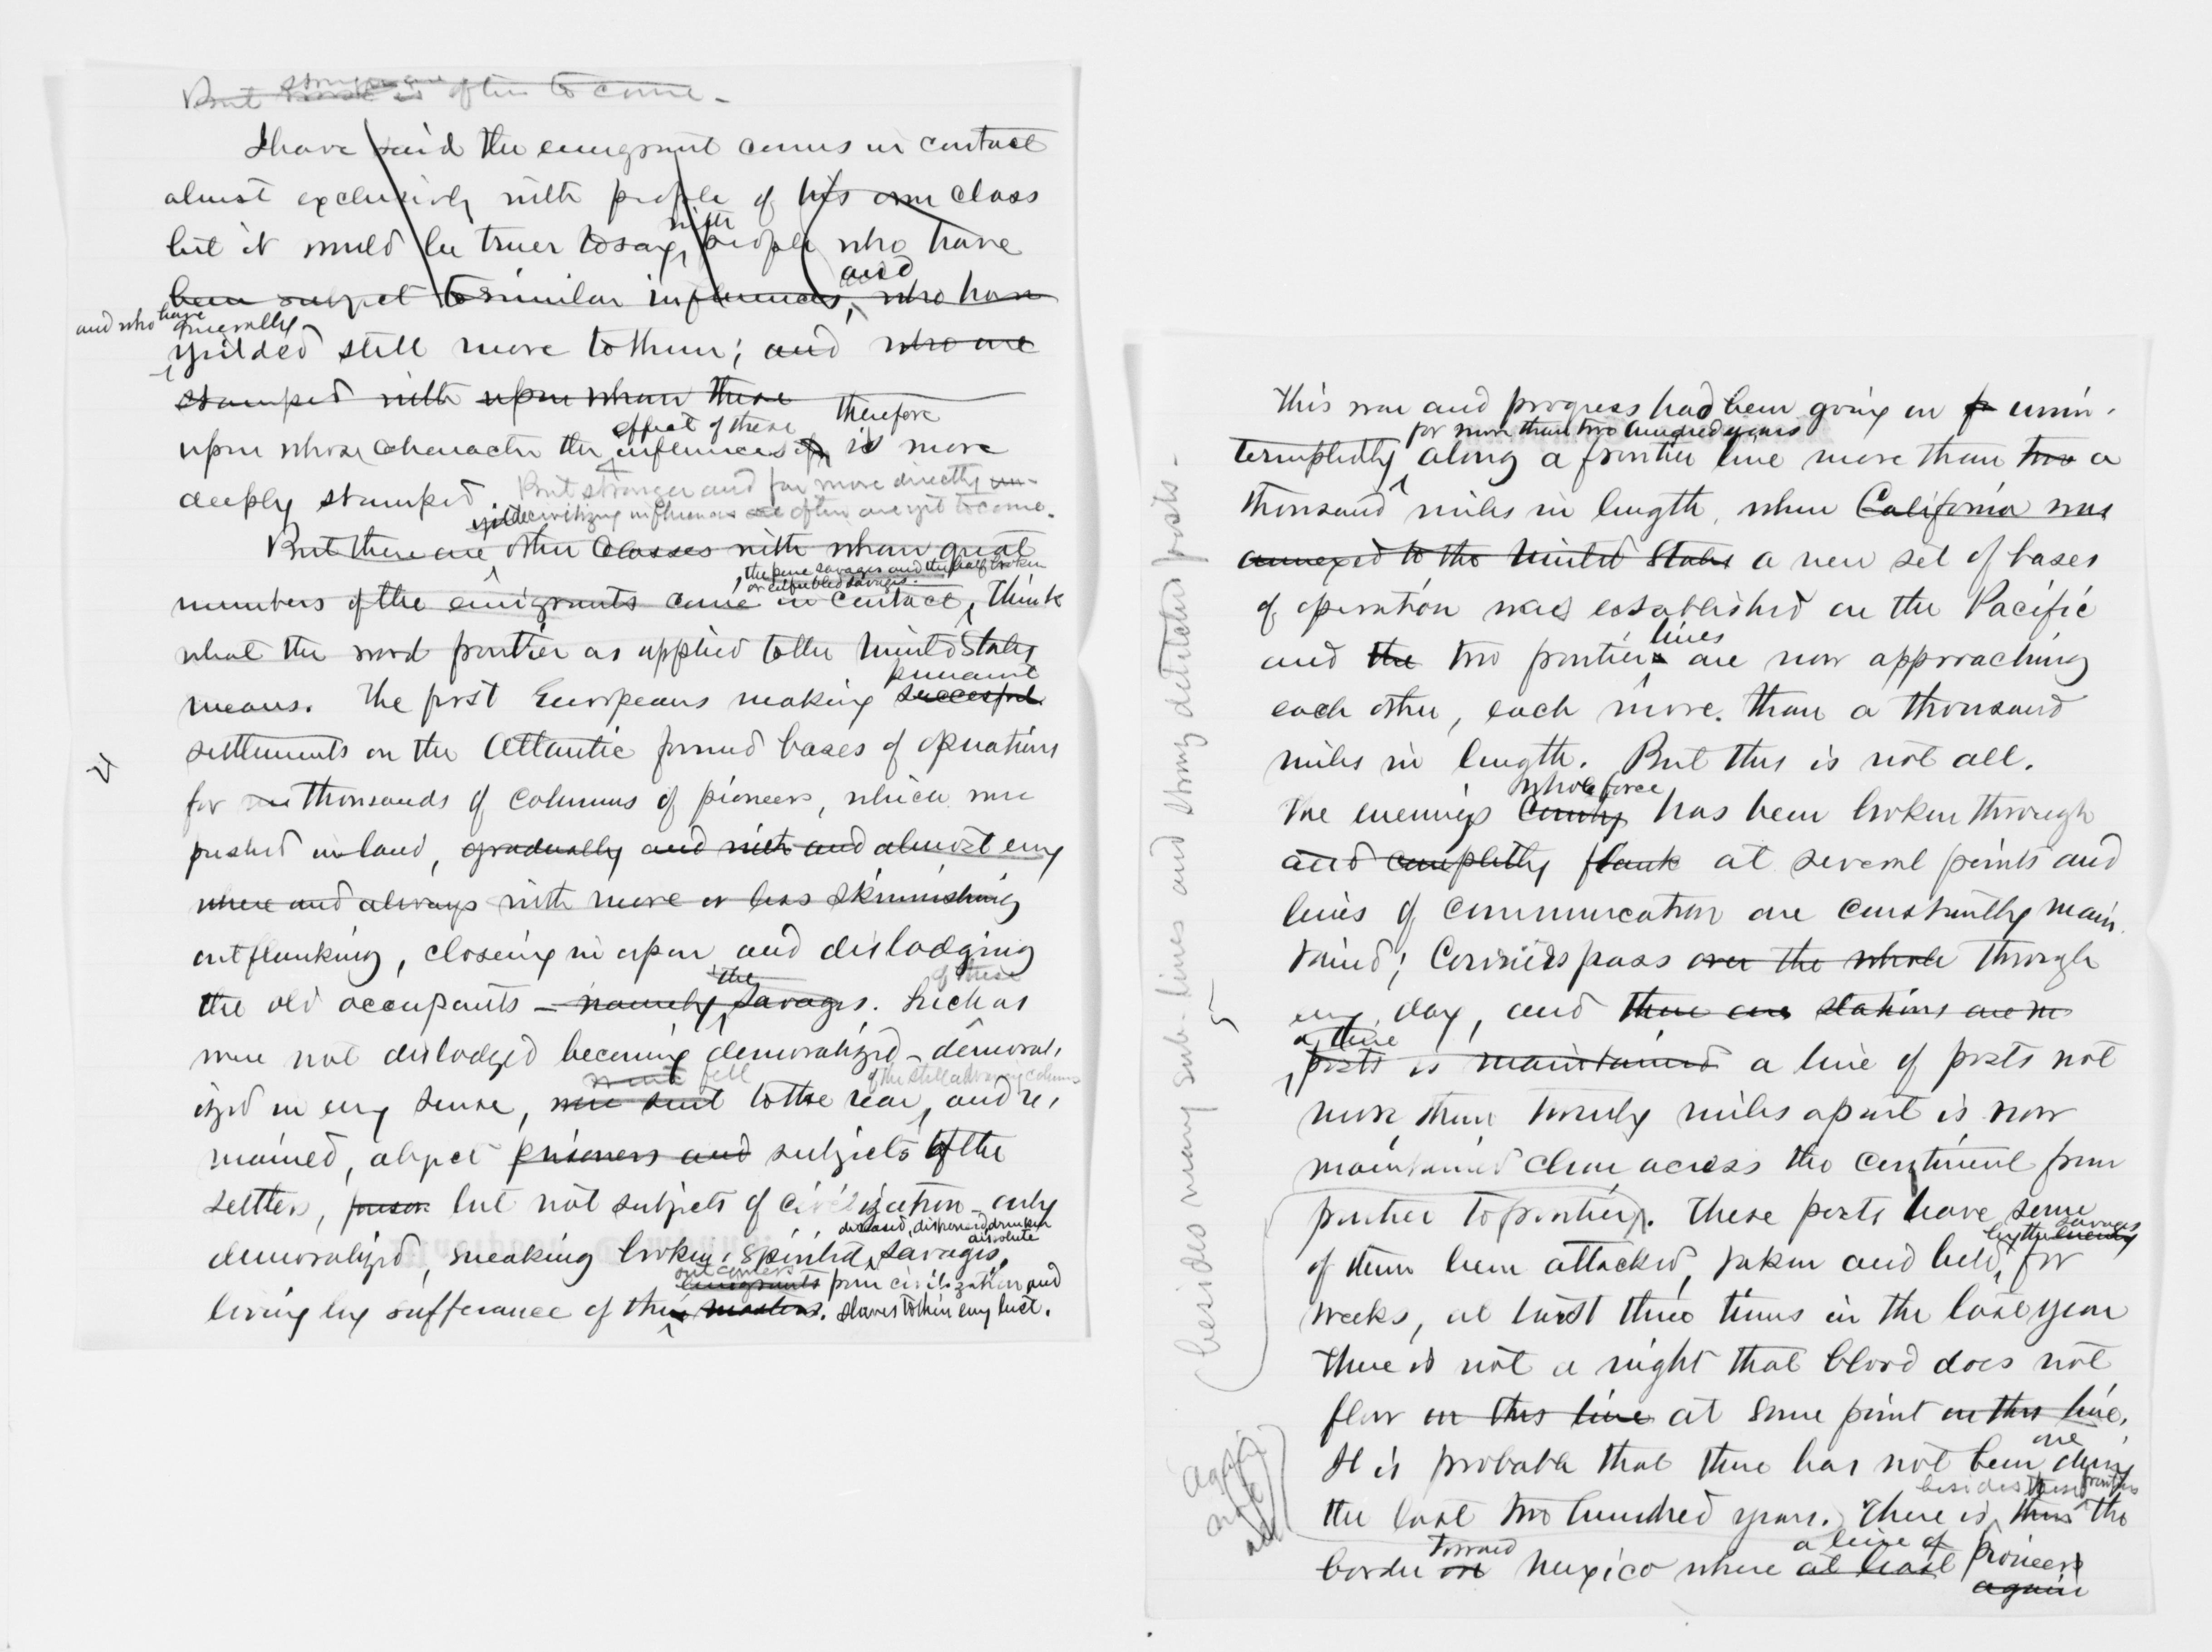 But stronger are often to come -
I have said the emigrant comes in contact
almost exclusively with people of his own class
but it would be truer to say, with people who have
been subject to similar influences, and who have
and who have generally
yielded still more to them; and who are
stamped with upon whom these
upon whose character the effect of these influences is therefore more
deeply stamped. But stronger and far more directly un-
decivilizing influences are often are yet to come.
But there are yet other classes with whom great
the pure savages and the half broken
or enfeebled savages.
numbers of the emigrants come in contact, Think
what the word frontier as applied to the United States
means. The first Europeans making permanent successful
settlements on the Atlantic formed bases of operations
for thousands of columns of pioneers, which were
pushed inland, gradually and with and almost every
where and always with more or less skirmishing
outflanking, closeing in upon and dislodging
the old occupants - namely, the savages. Such of these as
were not dislodged becoming demoralized - demoral-
ized in every sense, were sent fell to the rear of the still advancing columns, and re-
mained, abject prisoners and subjects of the
settlers, but not subjects of civilization - only
demoralized, sneaking broken spirited, diseased, dispersed, drunken dissolute savages,
living by sufferance of the emigrants outcomers from civilization and masters. slaves to their every lust.
21
This war and progress had been going on unin-
terruptedly for more than two hundred years along a frontier line more than two a
thousand miles in length, when California was
annexed to the United States a new set of bases
of operation was established on the Pacific
and the two frontier lines are now approaching
each other, each more than a thousand
miles in length. But this is not all.
The enemy's county whole force has been broken through
and completly flank at several points and
lines of communication are constantly main-
tained; Couriers pass over the whole through
every day, and there are stations are
a line
posts is maintained a line of posts not
more than twenty miles apart is now
maintained clear across the continent from
frontier to frontier. These posts have some
of them been attacked, taken and held, by the enemy savages for
weeks, at least three times in the last year
There is not a night that blood does not
flow on this line at some point on this line.
It is probable that there has not been one during
the last two hundred years. There is thus besides these frontiers the
border on toward Mexico where at least a line of pioneers
again
besides many sub-lines and strong detached posts -